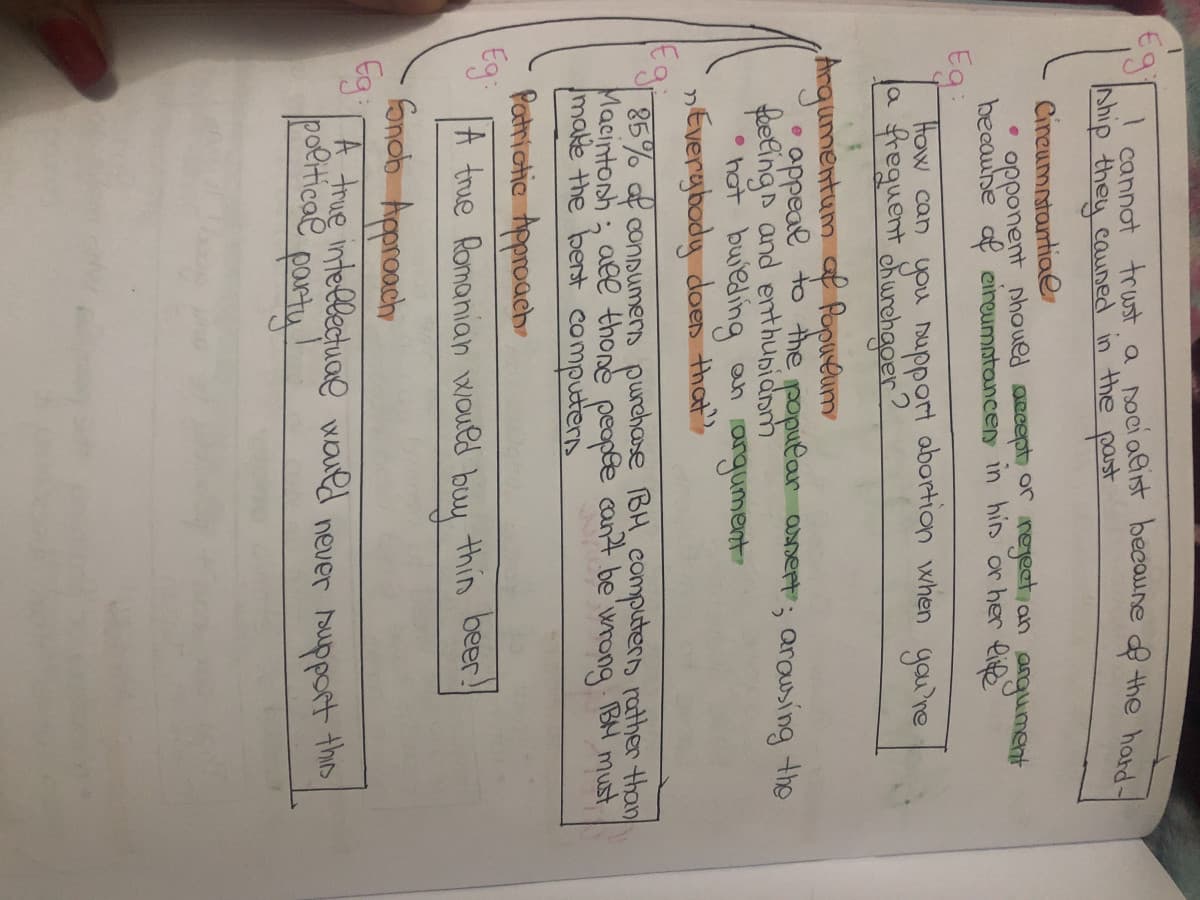 Eg: I cannot trust a socialist because of the hard-
ship they caused in the past
Circumstantial
• opponent should accept or reject an argument
because of circumstances in his or her life
Eg:
How can you support abortion when you're
a frequent churchgoer?
Argumentum of Populum
• appeal to the popular assert; arousing the
feelings and enthusiasm
• not building an argument
„Everybody does that”
Eg:
85% of consumers purchase IBM computers rather than
Macintosh; all those people can't be wrong. IBM must
make the best computers
Patriotic Approach
Eg:
A true Romanian would buy this beer!
Snob Approach
Eg:
A true intellectual would never support this
political party!